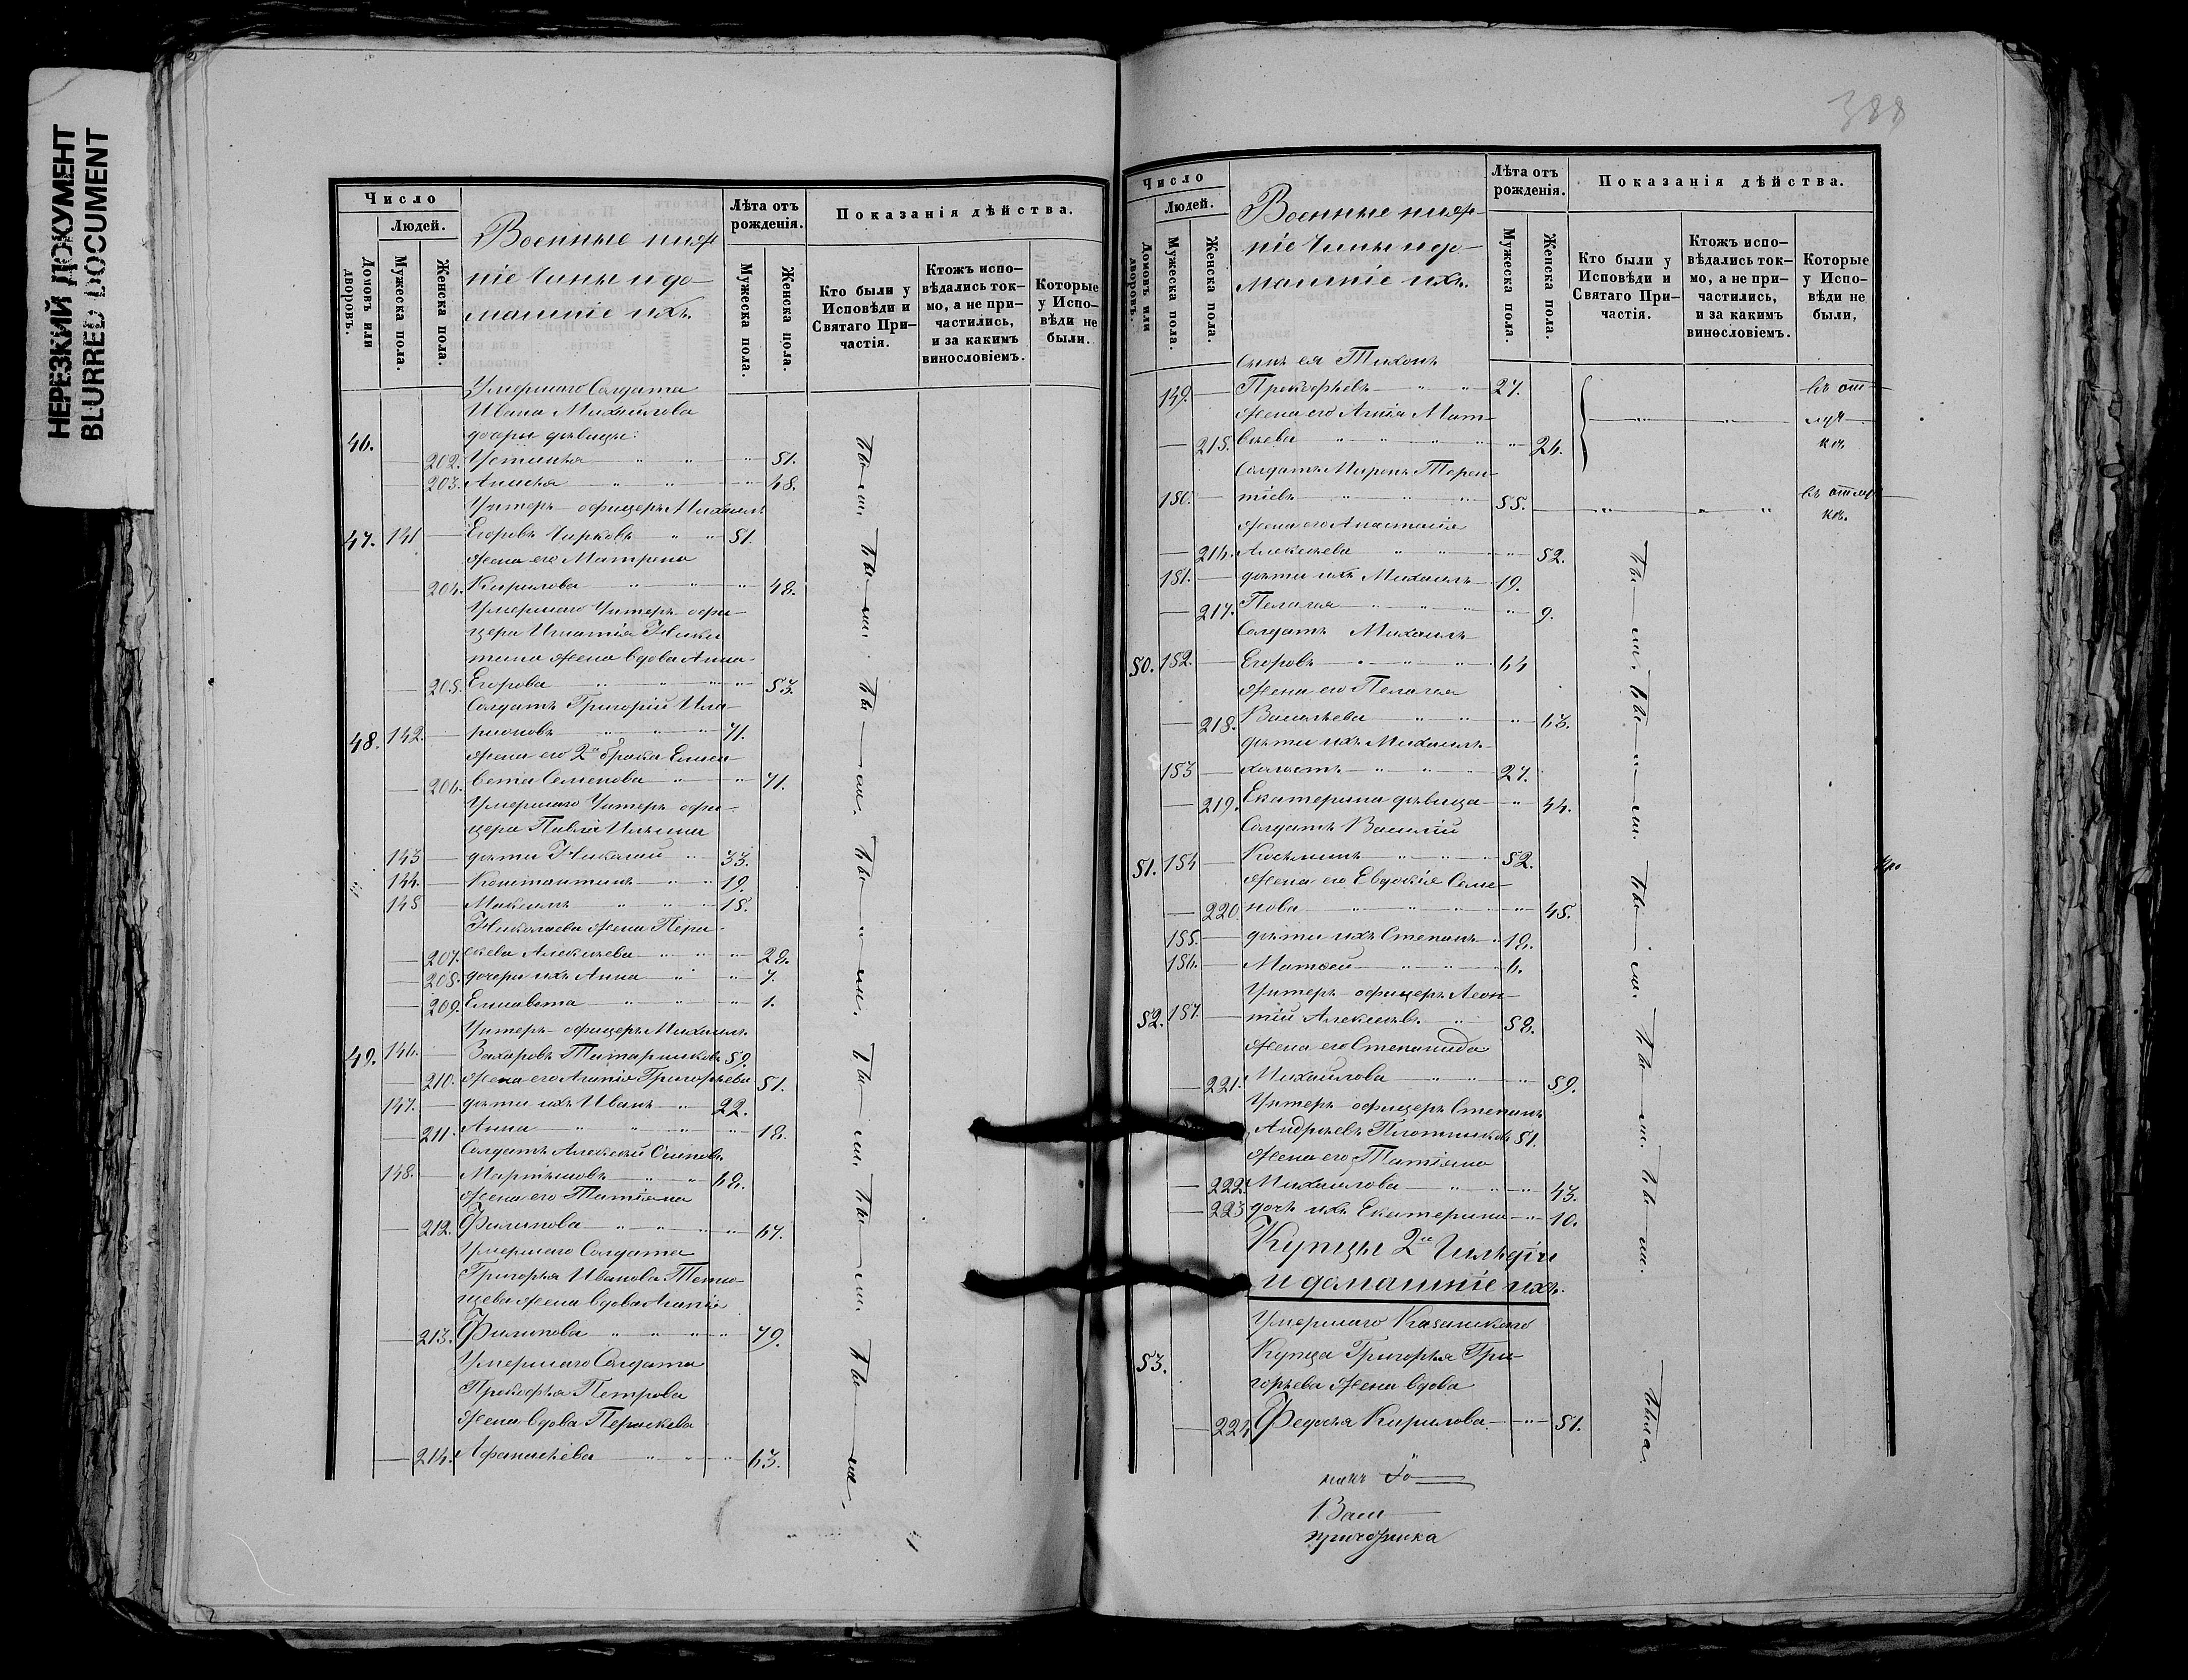 НЕРЕЗКИЙ ДОКУМЕНТ
BLURRED DOCUMENT
Число
Людей.
Домовъ или дворовъ.
Мужеска пола.
Женска пола.
Военные ниж-
ніе Чины и до-
машніе ихъ.
Лѣта отъ рожденія.
Мужеска пола.
Женска пола.
Показанія дѣйства.
Кто были у Исповѣди и Святаго Причастія.
Ктожъ испо-
вѣдались ток-
мо, а не при-
частились,
и за какимъ
винословіемъ.
Которые
у Испо-
вѣди не
были.
Умершаго Солдата
Ивана Михайлова
46. дочери дѣвицы:
202. Устинья 51.
203. Анисья 48.
Унтеръ-офицеръ Михаилъ
47. 141 Егоровъ Чирковъ 51.
жена его Матрена
204. Кирилова 48.
Умершаго Унтеръ-офи-
цера Игнатія Ники-
тина жена вдова Анна
205. Егорова 53.
Солдатъ Григорій Ила-
48. 142. ріоновъ 71.
жена его 2го брака Елиса-
206. вета Семенова 71.
Умершаго Унтеръ офи-
цера Павла Ильина
143 дѣти Николай 33.
144. Константинъ 19.
145 Максимъ 15.
Николаева жена Пара-
207. скева Алексѣева 28.
208. дочери ихъ Анна 7.
209. Елисавета 1.
Унтеръ-офицеръ Михаилъ
49. 146. Захаровъ Татаринковъ 59.
210. жена его Агапія Григорьева 51.
147. дѣти ихъ Иванъ 22.
211. Анна 18.
Солдатъ Алексѣй Осиповъ
148. Мартыновъ 68.
жена его Татіана
212. Филипова 67.
Умершаго Солдата
Григорья Иванова
жена вдова
213. Филипова 79.
Умершаго Солдата
Прокофья Петрова
жена вдова Параскева
214. Афанасьева 63.
388
Число
Людей.
Домовъ или дворовъ.
Мужеска пола.
Женска пола.
Военные ниж-
ніе Чины и до-
машніе ихъ.
Лѣта отъ рожденія.
Мужеска пола.
Женска пола.
Показанія дѣйства.
Кто были у
Исповѣди и
Святаго При-
частія.
Ктожъ испо-
вѣдались ток-
мо, а не при-
частились,
и за какимъ
винословіемъ.
Которые
у Испо-
вѣди не
были.
сынъ ея Тихонъ
149. Прокофьевъ 27. въ от-
жена его Анна Мат- луч-
215. вѣева 26. кѣ
Солдатъ Миронъ Терен-
150. тіевъ 55. въ отлуч-
кѣ.
жена его Анастасія
216. Алексѣева 52.
151. дѣти ихъ Михаилъ 19.
217. Пелагея 9.
Солдатъ Михаилъ
50. 152. Егоровъ 64
жена его Пелагея
218. Васильева 63.
дѣти ихъ Михаилъ
153 холостъ 27.
219. Екатерина дѣвица 44.
Солдатъ Василій
51. 154 Косьминъ 52.
жена его Евдокія Семе-
220. нова 45.
155. дѣти ихъ Степанъ 18.
156. Матѳей 6.
Унтеръ-офицеръ Леон-
52. 157. тій Алексѣевъ 58.
жена его Степанида
221. Михайлова 59.
Унтеръ-офицеръ Степанъ
Андреевъ Плотниковъ 51.
жена его Татіана
222. Михайлова 43.
223 дочь ихъ Екатерина 10.
Купцы 2й Гильдіи
и домашніе ихъ.
Умершаго Казанскаго
53. Купца Григорья Гри-
горьева жена вдова
224 Федосья Кирилова 51.
была.